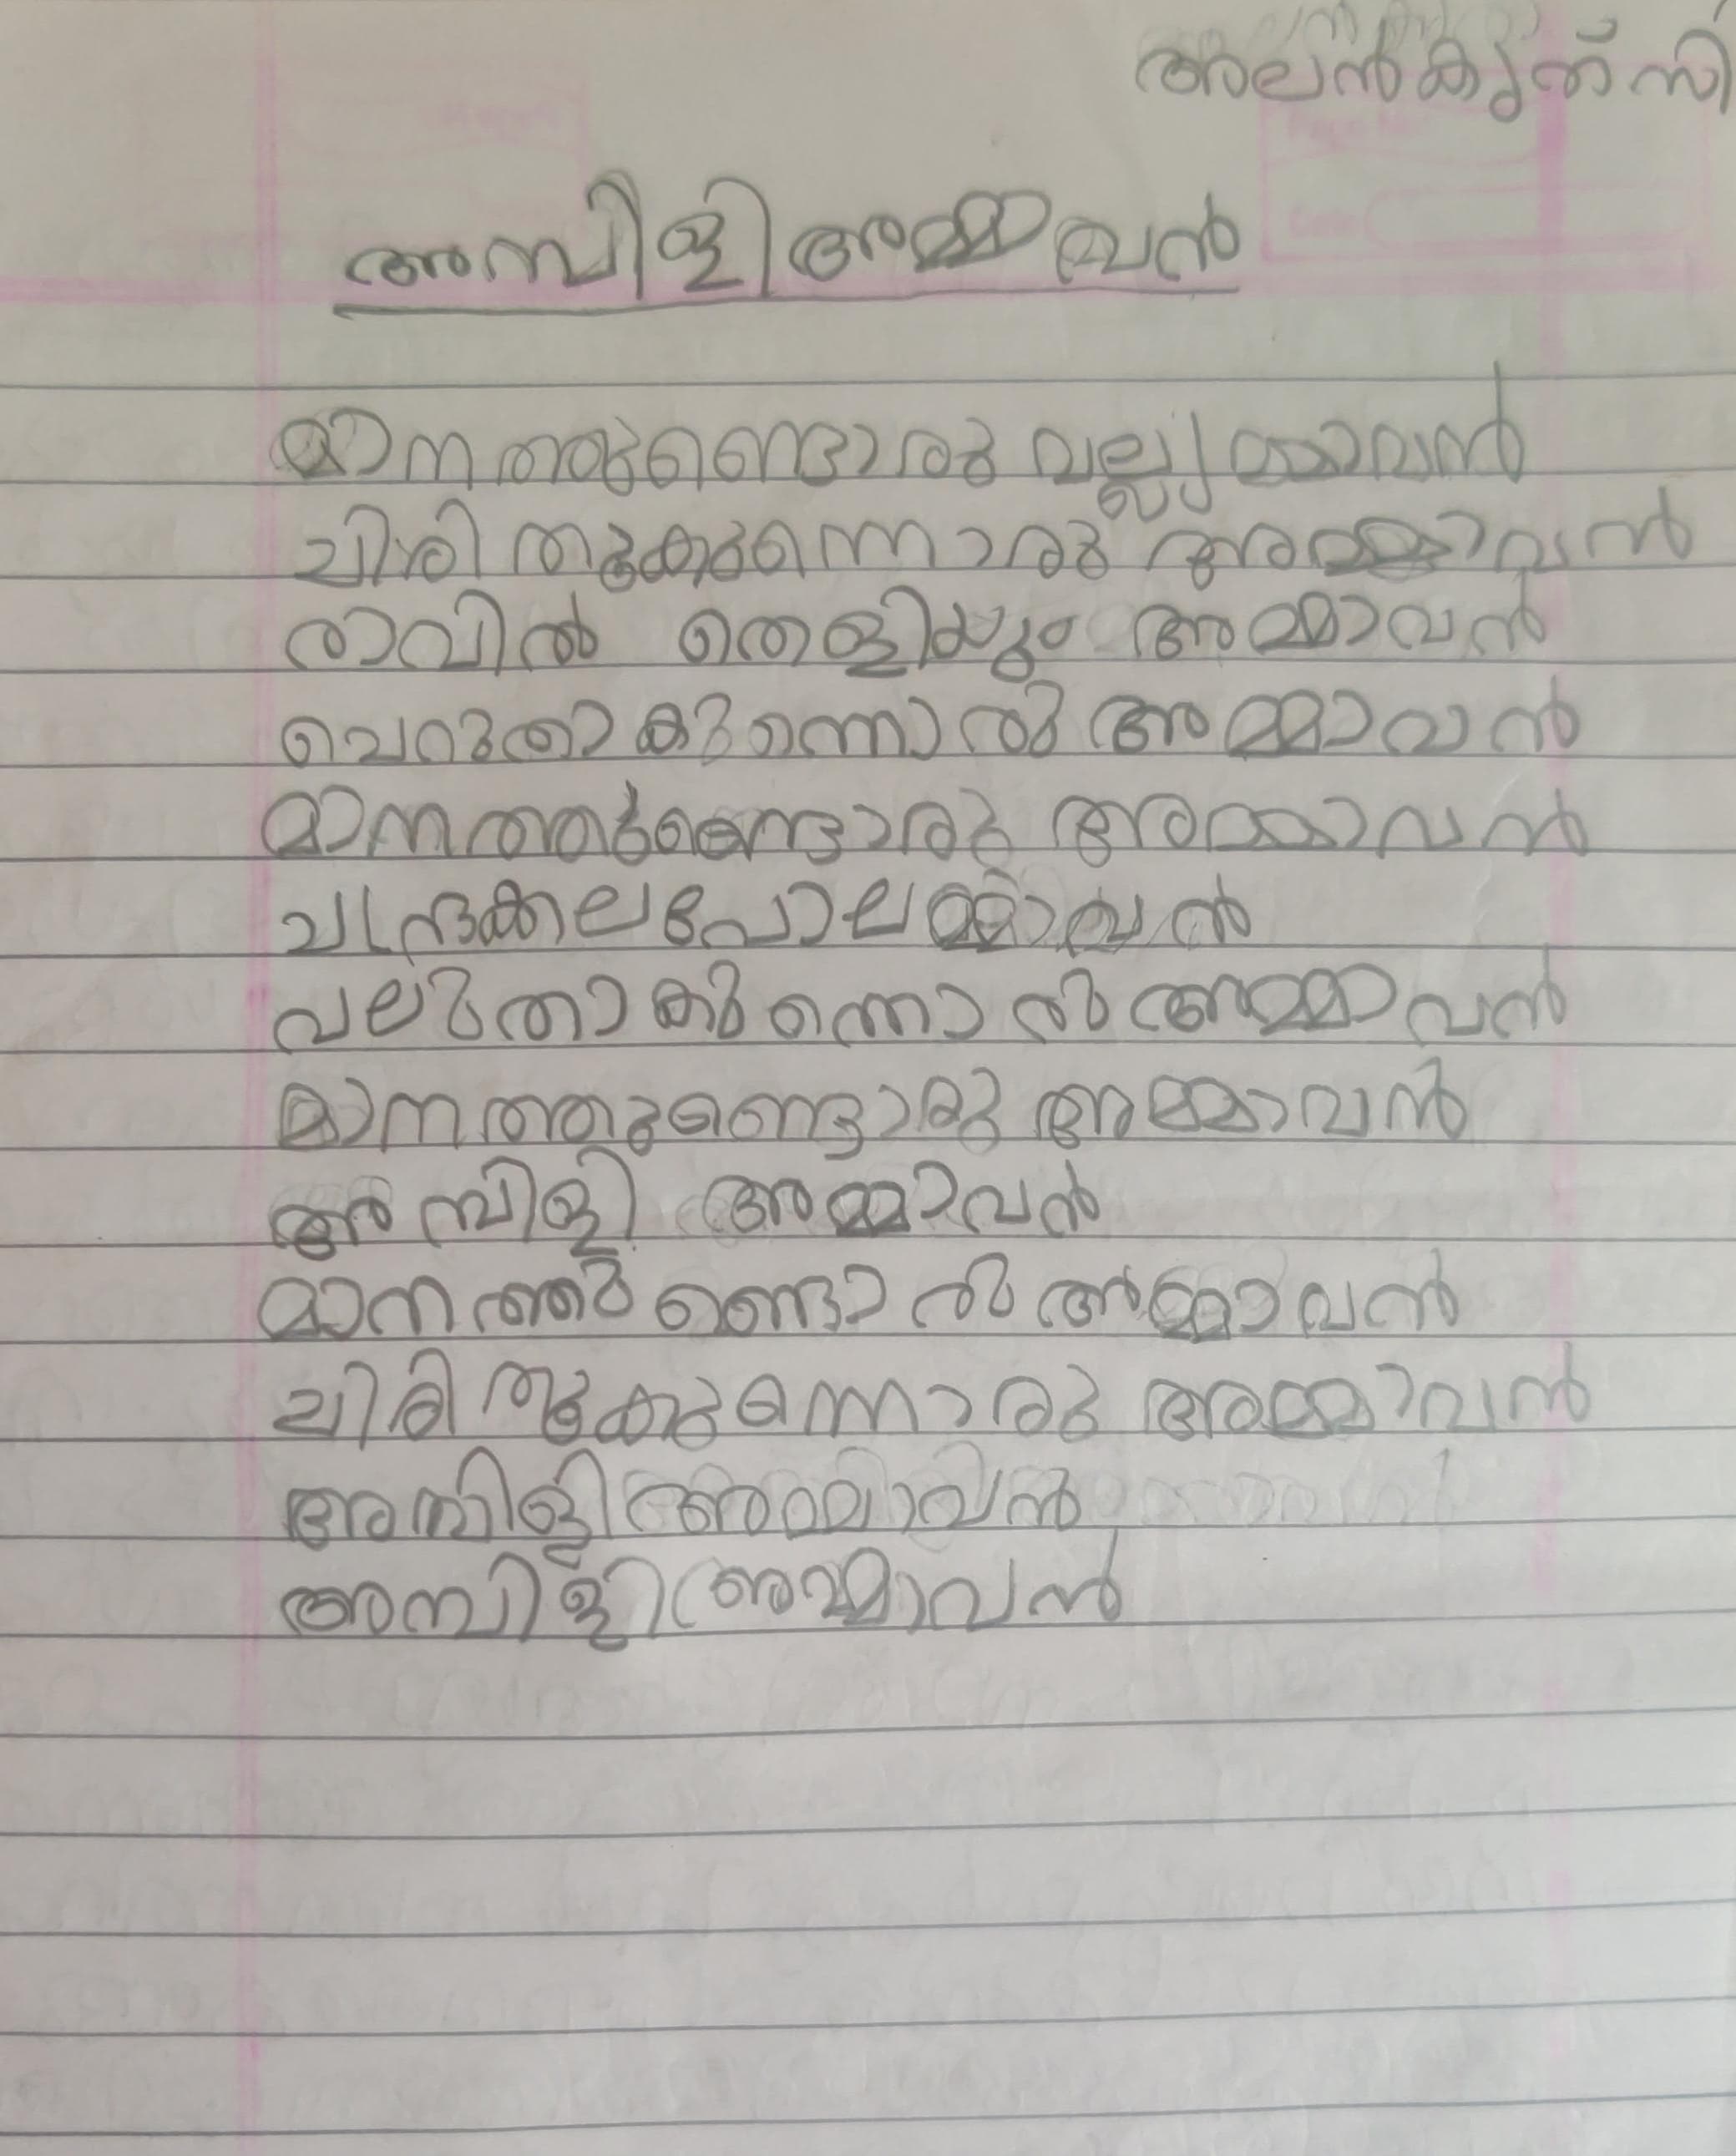 അമ്പിളി അമ്മാവൻ
മാനത്തുണ്ടൊരു വല്ല്യമ്മാവൻ
ചിരി തൂകുന്നൊരു അമ്മാവൻ
രാവിൽ തെളിയും അമ്മാവൻ
ചെറുതാകുന്നൊരു അമ്മാവൻ
മാനത്തുണ്ടൊരു അമ്മാവൻ
ചന്ദ്രക്കല പോലമ്മാവൻ
വലുതാകുന്നൊരു അമ്മാവൻ
മാനത്തുണ്ടൊരു അമ്മാവൻ
അമ്പിളി അമ്മാവൻ
മാനത്തുണ്ടൊരു അമ്മാവൻ
ചിരി തൂകുന്നൊരു അമ്മാവൻ
അമ്പിളി അമ്മാവൻ
അമ്പിളി അമ്മാവൻ